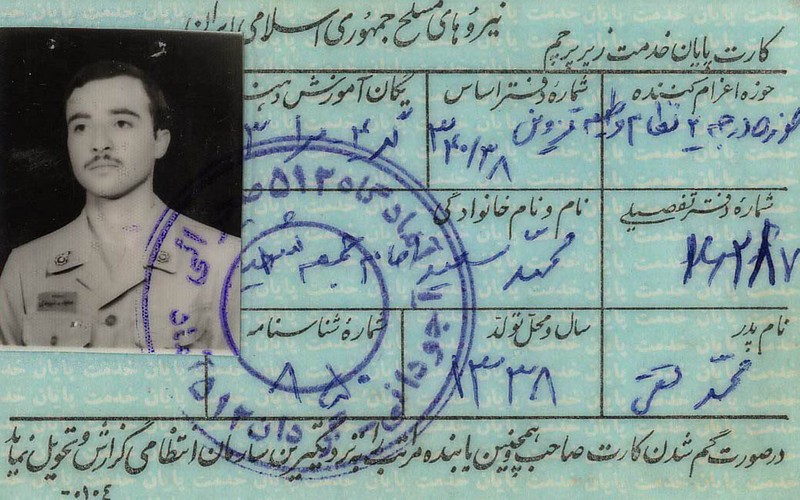 نیروهای مسلح جمهوری اسلامی ایران
کارت پایان خدمت زیر پرچم
حوزه اعزام کننده
شماره دفتر اساس
یگان آموزش دهنده
حوزه درجه ۲ نظام وظیفه قزوین
۳۴۰/۳۸
شماره دفتر تفصیلی
نام و نام خانوادگی
محمد سعید امام جمعه شهیدی
نام پدر
سال و محل تولد
شماره شناسنامه
محمد تقی
۱۳۳۸
۸۸۰
در صورت گم شدن کارت صاحب و همچنین یابنده مراتب را به نزدیکترین سازمان انتظامی گزارش و تحویل نماید
-۰۱۰٤